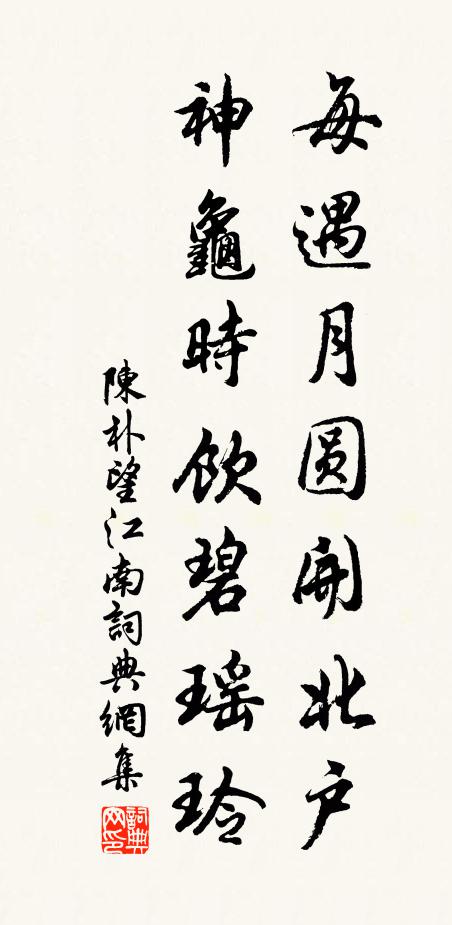 每遇月圆開北户
神龜時飲碧瑶玲
陳朴望江南詞典網集
詞典网印